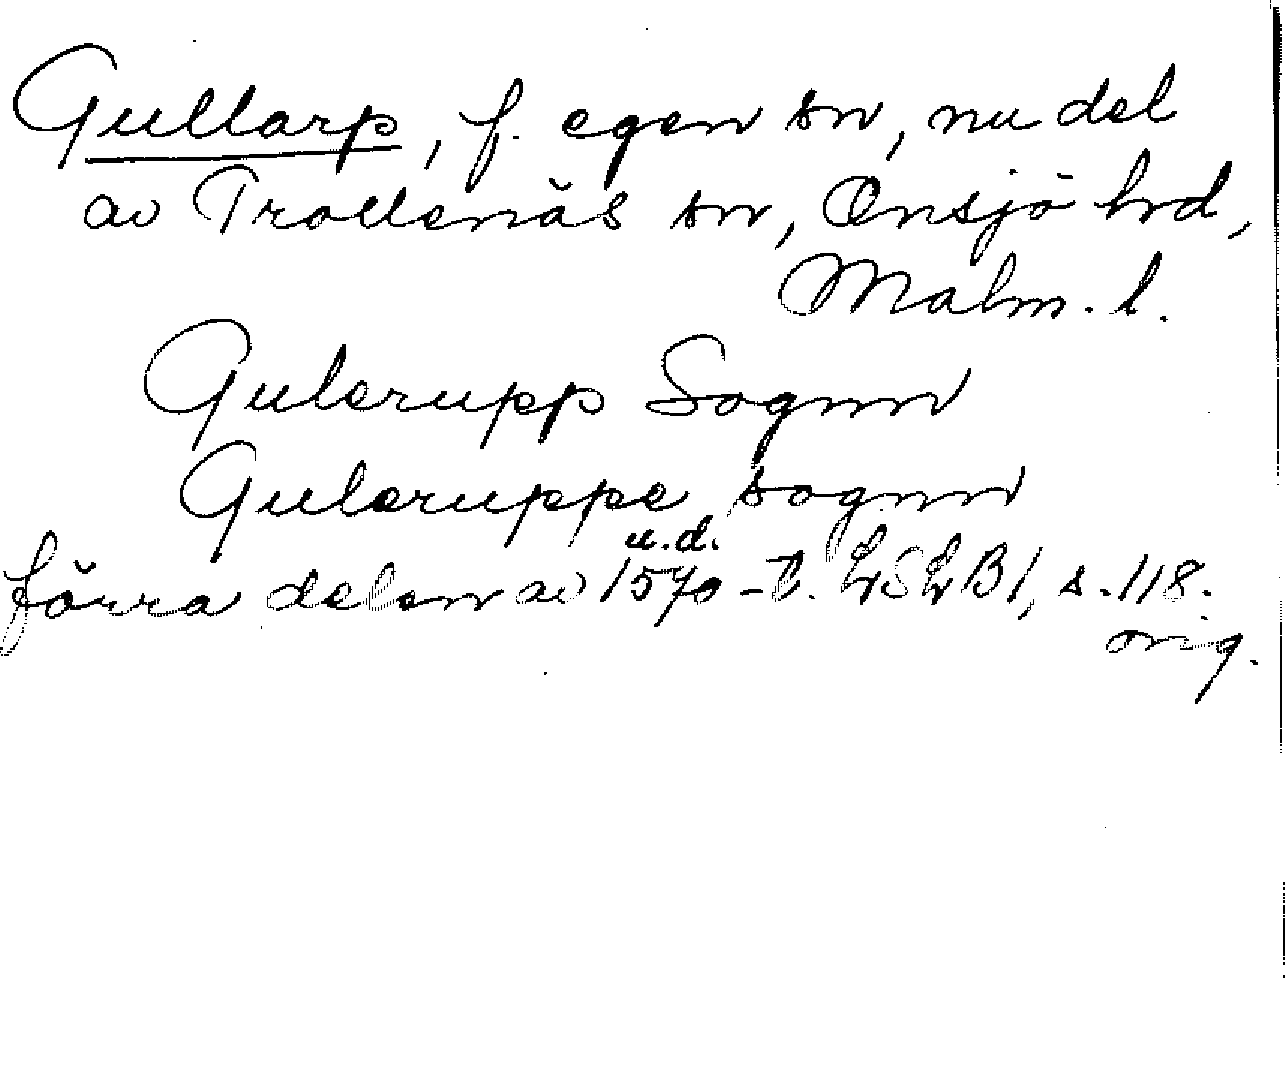 Gullarp, f. egen sn, nu del
av Trollenäs sn, Onsjö hrd,
Malm. l.
Gulerupp Sognn
Guleruppe sognn
u.d.
förra delen av 1570-t. LSLB1, s. 118.
orig.